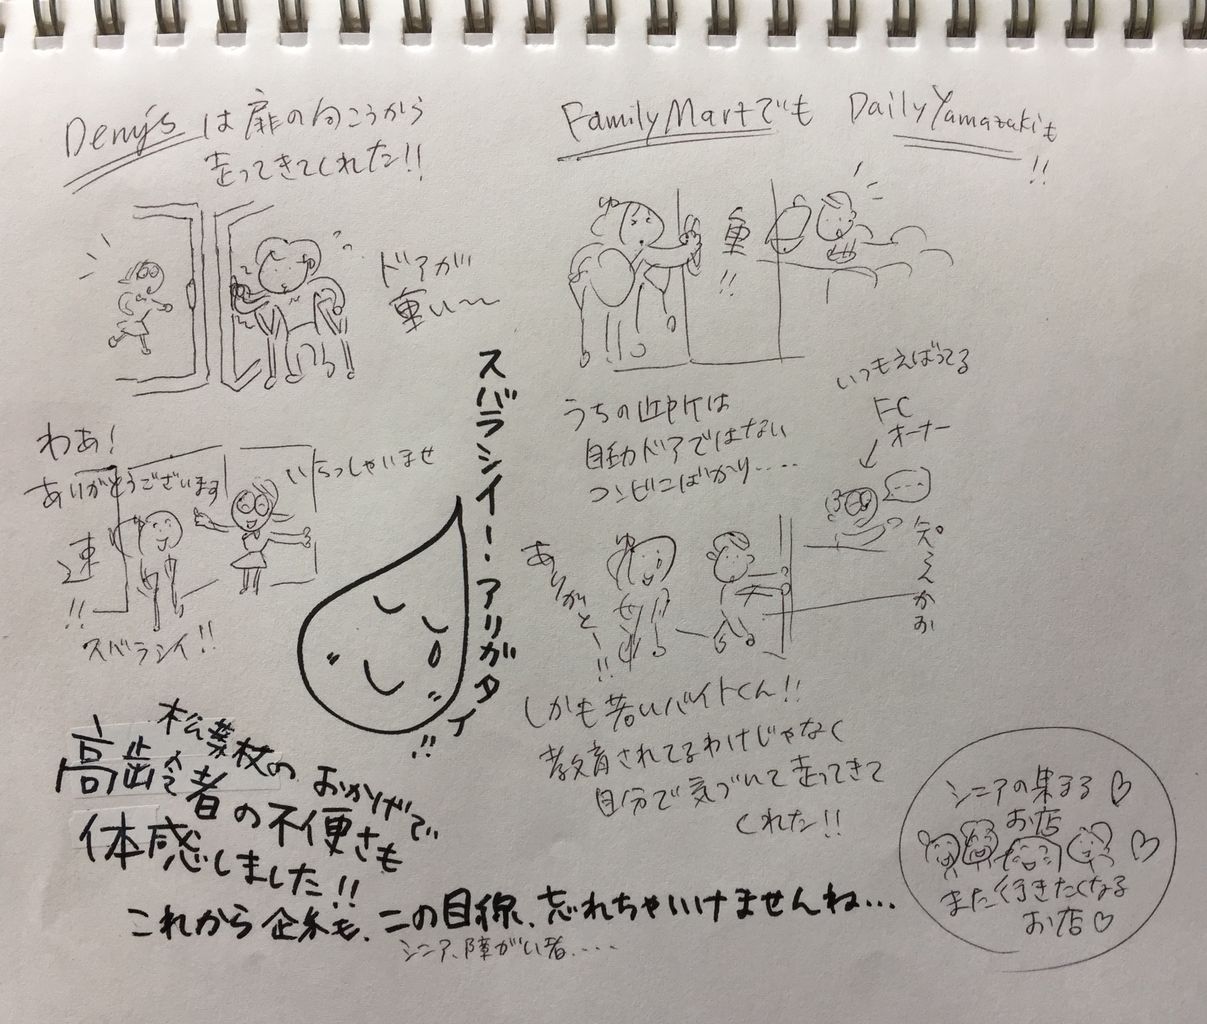 Denny's は扉の向こうから
走ってきてくれた!!
ドアが
重い〜〜
わあ!
ありがとうございます
いらっしゃいませ
速
!!
スバラシイ!!
スバラシイー・アリガタイ!!
FamilyMartでも
DailyYamazakiも
!!
重
!!
うちの近所は
自動ドアではない
コンビニばかり....
いつもえばってる
FC
オーナー
...
ありがとー!!
しかも若いバイトくん!!
教育されてるわけじゃなく
自分で気づいて走ってきて
くれた!!
松葉杖のおかげで
高齢者の不便さも
体感しました!!
これから企業も、この目線、忘れちゃいけませんね...
シニア、障がい者....
シニアの集まる♡
お店
♡
また行きたくなる
お店♡